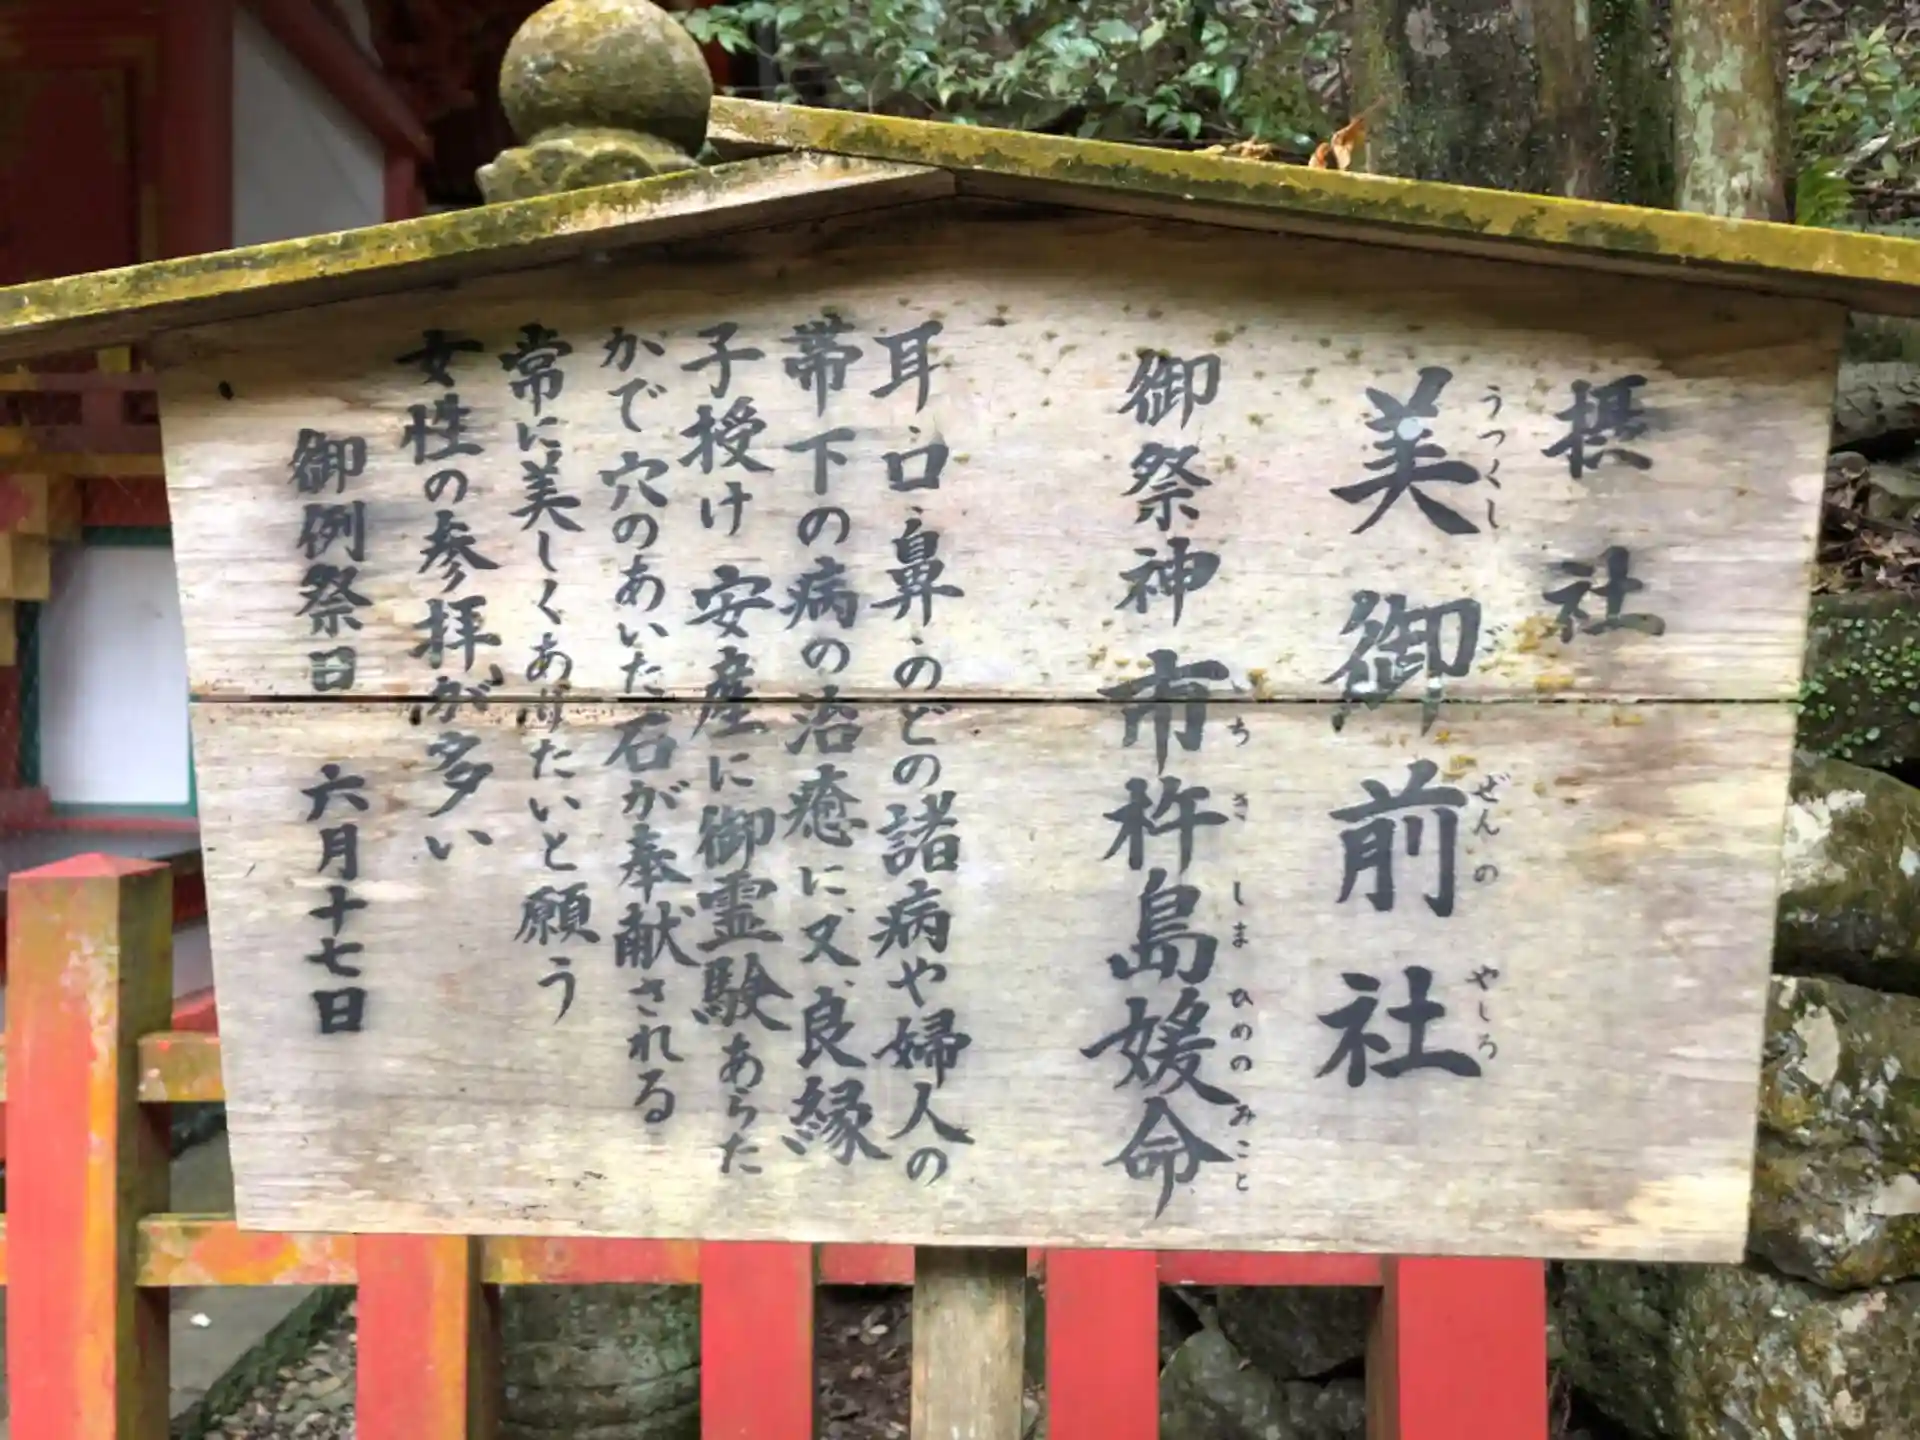 摂社
美御前社
うつくし ご ぜんの やしろ
御祭神 市杵島媛命
いち き しま ひめの みこと
耳、口、鼻、のどの諸病や婦人の
帯下の病の治癒に、又、良縁
子授け 安産に御霊験あらた
かで穴のあいた石が奉献される
常に美しくありたいと願う
女性の参拝が多い
御例祭日 六月十七日